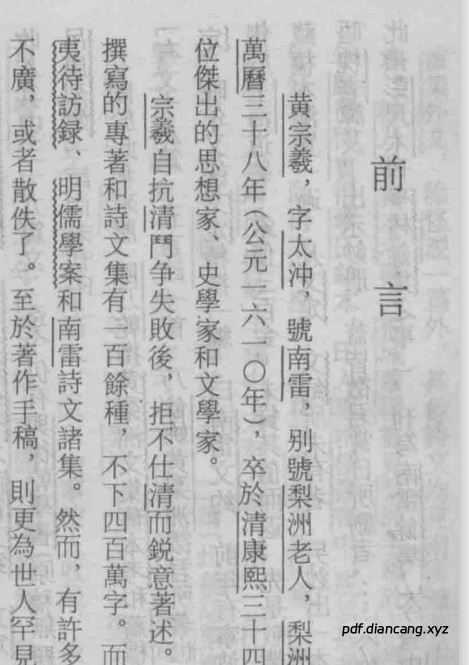 前言
黄宗羲，字太沖，號南雷，别號梨洲老人，梨洲
萬曆三十八年（公元一六一〇年），卒於清康熙三十四
位傑出的思想家、史學家和文學家。
宗羲自抗清鬥争失敗後，拒不仕清而鋭意著述。
撰寫的專著和詩文集有一百餘種，不下四百萬字。而
夷待訪録、明儒學案和南雷詩文諸集。然而，有許多
不廣，或者散佚了。至於著作手稿，則更為世人罕見
pdf.diancang.xyz